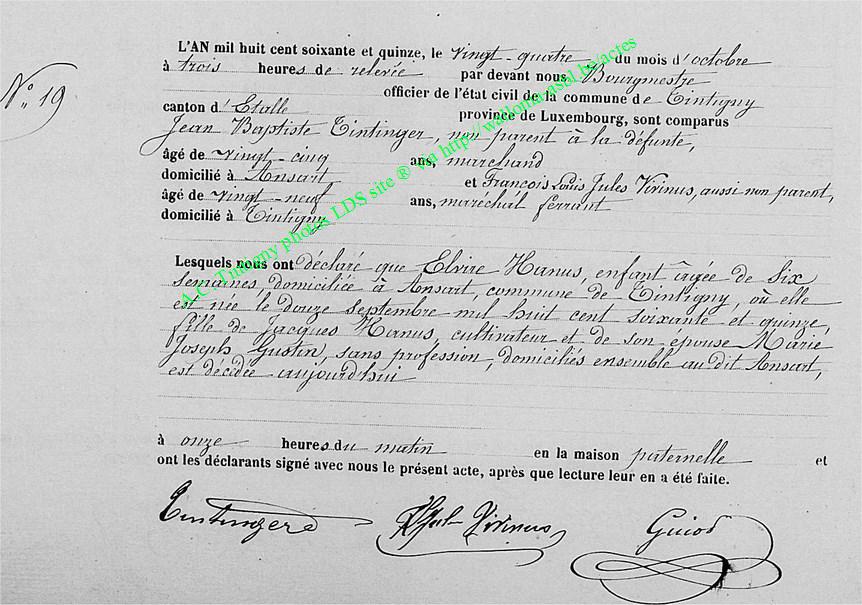 L'AN mil huit cent soixante et quinze, le vingt-quatre du mois d'octobre
à trois heures de relevée par devant nous Bourgmestre
officier de l'état civil de la commune de Tintigny
N° 19
canton d'Etalle province de Luxembourg, sont comparus
Jean Baptiste Tintinger, non parent à la défunte,
âgé de vingt-cinq ans, marchand
domicilié à Ansart et François Louis Jules Virinus, aussi non parent,
âgé de vingt-neuf ans, maréchal ferrant
domicilié à Tintigny
Lesquels nous ont déclaré que Elvire Hanus, enfant âgée de six
semaines, domiciliée à Ansart, commune de Tintigny, où elle
est née le douze septembre mil huit cent soixante et quinze,
fille de Jacques Hanus, cultivateur et de son épouse Marie
Joseph Gustin, sans profession, domiciliés ensemble au dit Ansart,
est décédée aujourd'hui
à onze heures du matin en la maison paternelle et
ont les déclarants signé avec nous le présent acte, après que lecture leur en a été faite.
Virinus
A.C. Tintigny photos LDS site ® via http://wallonia-asbl.be/actes